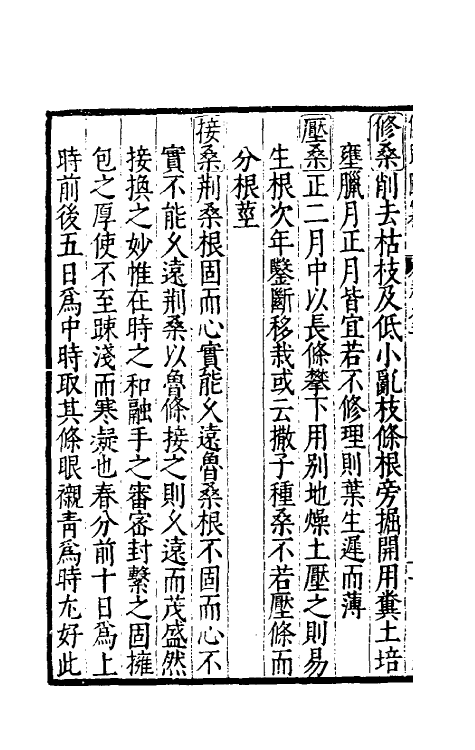 修桑削去枯枝及低小亂枝條根旁掘開用糞土培
壅臘月正月皆宜若不修理則葉生遲而薄
壓桑正二月中以長條攀下用别地燥土壓之則易
生根次年鑿斷移栽或云撒子種桑不若壓條而
分根莖
接桑荆桑根固而心實能久遠魯桑根不固而心不
實不能久遠荆桑以魯條接之則久遠而茂盛然
接換之妙惟在時之和融手之審密封繫之固擁
包之厚使不至踈淺而寒凝也春分前十日爲上
時前後五日爲中時取其條眼襯青爲時尤好此